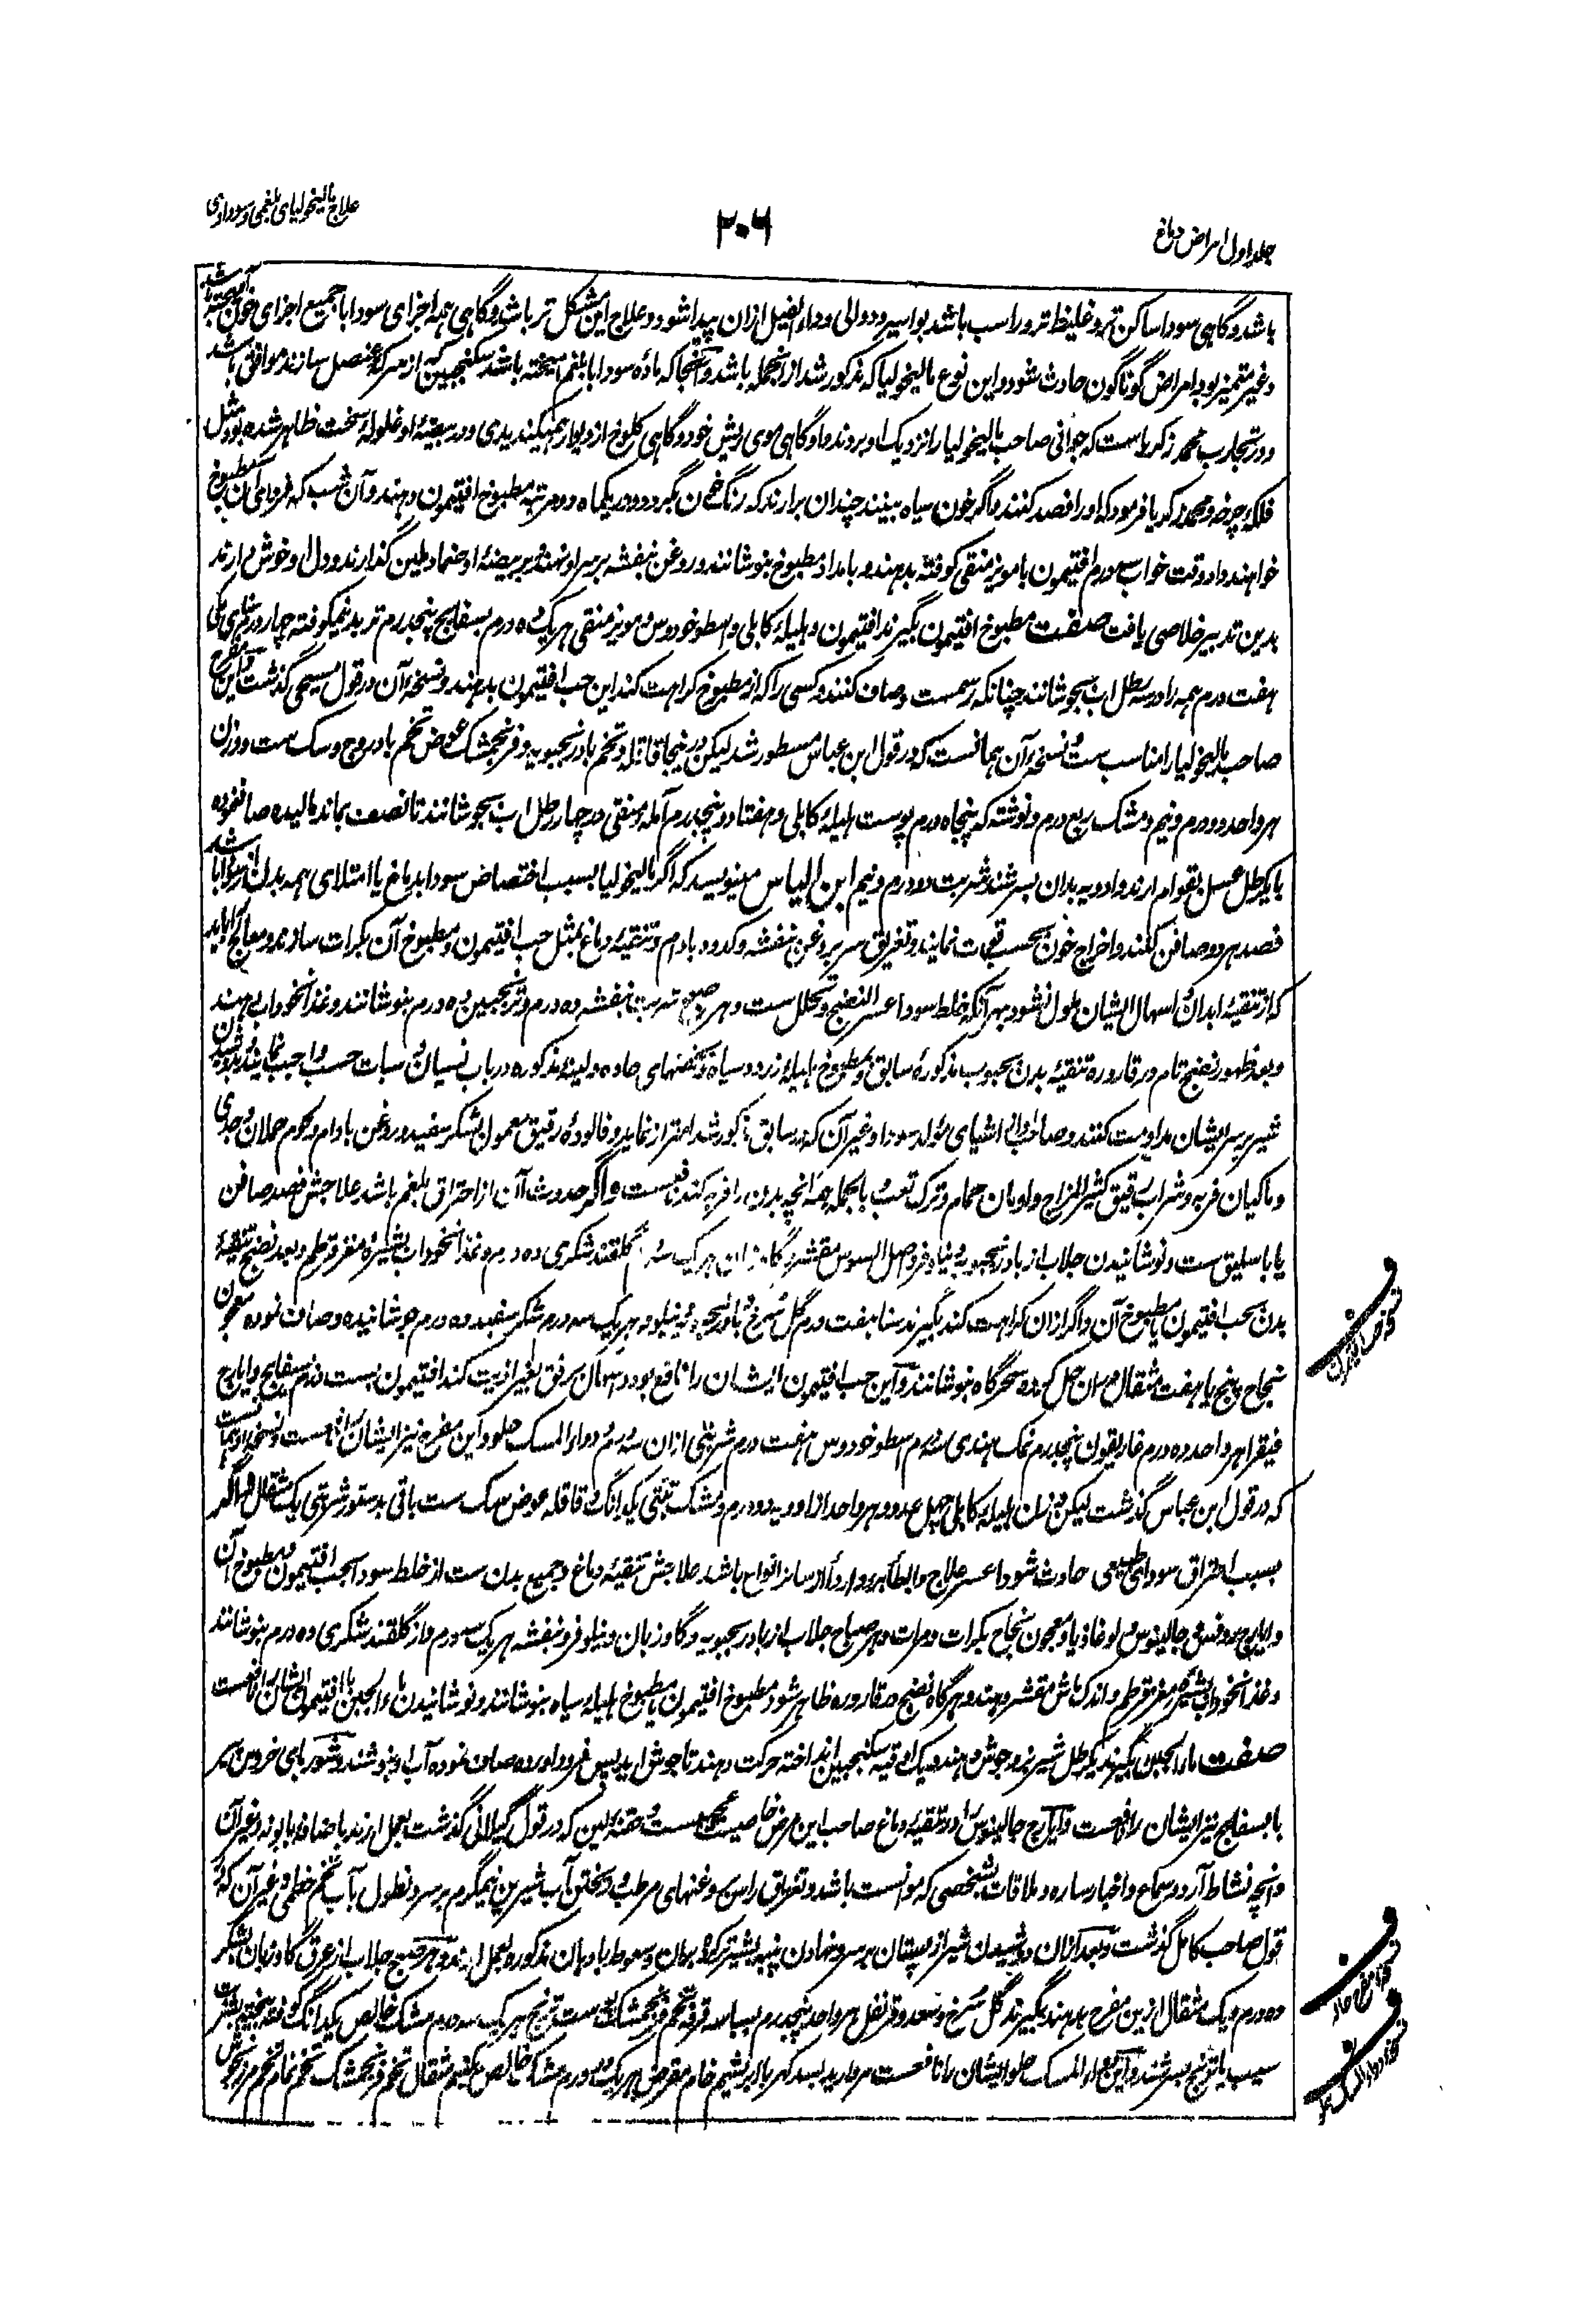 جلد اول امراض دماغ
۲۰۶
علاج مالیخولیای بلغمی و سوداوی
باشد و گاهی سودا ساکن تر و غلیظ تر و راسب باشد بواسیر و دوالی و داء الفیل ازان پیدا شود و علاج این مشکل تر باشد و گاهی همه اجزای سودا با جمیع اجزای خون آمیخته باشد
و غیر متمیز بود امراض گوناگون حادث شود و این نوع مالیخولیا که مذکور شد ازانجمله باشد و آنجا که ماده سودا با بلغم آمیخته باشد سکنجبین که از سرکه عنصل سازند موافق باشد
و در تجارب محمد زکریاست که جوانی صاحب مالیخولیا را نزدیک او بردند و او گاهی موی ریش خود و گاهی کلوخ از دیوار همیکندیدی و در بیضهٔ او غلوله سخت ظاهر شده بود مثل
فلکهٔ چرخه و محمد زکریا فرمود که او را فصد کنند و اگر خون سیاه بینند چندان برارند که رنگ خون بگردد و در یکماه دو مرتبه مطبوخ افتیمون دهند و آن شب که فردای آن مطبوخ
خواهند داد وقت خواب سه درم افتیمون با مویز منقی کوفته بدهند و بامداد مطبوخ بنوشانند و روغن بنفشه بر سر او نهند و بر بیضهٔ او ضماد طین گذارند و دل او خوش دارند
بدین تدبیر خلاصی یافت صفت مطبوخ افتیمون بگیرند افتیمون و هلیلهٔ کابلی و اسطوخودوس و مویز منقی هر یک ده درم بسفایج پنجدرم تربد نیمکوفته چهار درم سنای مکی
هفت درم همه را در سه رطل آب بجوشانند چنانکه رسمست و صاف کنند و کسی را که از مطبوخ کراهت کند این حب افتیمون بدهند و نسخهٔ آن در قول مسیحی گذشت و این مفرح
صاحب مالیخولیا را مناسب ست و نسخهٔ آن همانست که در قول ابن عباس مسطور شد لیکن در اینجا قاقله و تخم بادرنجبویه و فرنجمشک عوض تخم بادروج و سک ست و وزن
هر واحد دو درم و نیم و مشک ربع درم و نوشته که پنجاه درم پوست هلیلهٔ کابلی و هفتاد و پنجدرم آمله منقی در چهار رطل آب بجوشانند تا نصف بماند مالیده صاف نموده
با یکرطل عسل بقوام ارند و ادویه بدان بسرشند شربت دو درم و نیم ابن الیاس مینویسد که اگر مالیخولیا بسبب اختصاص سودا بدماغ یا امتلای همه بدن از سودا باشد
فصد هر دو صافن کنند و اخراج خون بحسب قوت نمایند و تغریق سر بروغن بنفشه و کدو و بادام و تنقیهٔ دماغ بمثل حب افتیمون و مطبوخ آن بکرات سازند و معالج را باید
که از تنقیهٔ ابدان و اسهال ایشان ملول نشود بهر آنکه خلط سودا عسر النضج و تحلل ست و هر صبح شربت بنفشه ده درم و ترنجبین ده درم بنوشانند و غذا نخوداب دهند
و بعد ظهور نضج تام در قاروره تنقیهٔ بدن بحبوب مذکورهٔ سابق و مطبوخ هلیلهٔ زرد و سیاه و حقنهای حاده و لینه مذکوره در باب نسیان و سبات حسب واجب نمایند و دوشیدن
شیر بر سر ایشان مداومت کنند و صاحب این اشیای مولد سودا و غیر آن که در سابق مذکور شد احتراز نماید و فالودهٔ رقیق معمول بشکر سفید و روغن بادام و لحوم حملان و جدی
و ماکیان فربه و شراب رقیق کثیر المزاج و ادمان حمام و ترک تعب بالجمله همه آنچه بدن را فربه کند نفیست و اگر حدوث آن از احتراق بلغم باشد علاجش فصد صافن
یا باسلیق ست و نوشانیدن جلاب از بادرنجبویه و نیلوفر و اصل السوس مقشر و گاوزبان هر یک سه درم گلقند شکری ده درم و غذا نخوداب بشیرهٔ مغز قرطم و بعد نضج تنقیهٔ
بدن بحب افتیمون یا مطبوخ آن و اگر ازان کراهت کند بگیرند سنا هفت درم گل سرخ و بادرنجبویه و نیلوفر هر یک سه درم شکر سفید ده درم جوشانیده و صاف نموده معجون
نجاح پنج یا هفت مثقال دران حل کرده سحرگاه بنوشانند و این حب افتیمون ایشان را نافع بود و اسهال برفق بغیر اذیت کند افتیمون بست درم بسفایج و ایارج
فیقرا هر واحد ده درم غاریقون پنجدرم نمک هندی سه درم اسطوخودوس هفت درم شربتی ازان سه درم و دواء المسک حلو و این مفرح نیز ایشان را نافعست و نسخهٔ او همانست
که در قول ابن عباس گذشت لیکن وزن هلیلهٔ کابلی چهل عدد و هر واحد از ادویه دو درم و مشک تبتی یکدانگ و قاقله عوض سک ست باقی بدستور شربتی یک مثقال و اگر
بسبب احتراق سودای طبیعی حادث شود اعسر علاج و ابطأ برءاً و اردأ از سائر انواع باشد علاجش تنقیهٔ دماغ و جمیع بدن ست از خلط سودا بحب افتیمون و مطبوخ آن
و ایارج روفس و جالینوس و لوغاذیا و معجون نجاح بکرات و مرات و هر صباح جلاب از بادرنجبویه و گاوزبان و نیلوفر و بنفشه هر یک سه درم و از گلقند شکری ده درم بنوشانند
و غذا نخوداب بشیره مغز قرطم و اندک ماش مقشر دهند و هرگاه نضج در قاروره ظاهر شود مطبوخ افتیمون یا مطبوخ هلیلهٔ سیاه بنوشانند و نوشانیدن ماء الجبن با افتیمون ایشان را نافعست
صفت ماء الجبن بگیرند یکرطل شیر بز و جوش دهند و یک اوقیه سکنجبین انداخته حرکت دهند تا جوش آید پس فرود آورده صاف نموده آب او بنوشند و شوربای خروس پیر
با بسفایج نیز ایشان را نافعست و ایارج جالینوس را در تنقیهٔ دماغ صاحب این مرض خاصیت عجیب ست و حقنهٔ لین که در قول گیلانی گذشت بعمل ارند باضافهٔ بابونه و غیر آن
و آنچه نشاط آرد و سماع و اخبار ساره و ملاقات بشخصی که موانست باشد و تغریق راس بروغنهای مرطب و ریختن آب شیرین نیمگرم بر سر و نطول بآب تخم خطمی و غیر آن که در
قول صاحب کامل گذشت و بعد ازان دوشیدن شیر از پستان بر سر و نهادن پنبه بشیر تر کرده بران و سعوط بادهان مذکوره بعمل ارند و هر صبح جلاب از عرق گاوزبان بشکر
ده درم و یک مثقال ازین مفرح بدهند بگیرند گل سرخ و سعد و قرنفل هر واحد پنجدرم بسباسه قرفه تخم فرنجمشک پوست ترنج هر یک سه درم مشک خالص یکدانگ کوفته بیخته بشربت
سیب یا ترنج بسرشند و این دواء المسک حلو ایشان را نافعست مروارید بسد کهربا ابریشم خام مقرض هر یک دو درم مشک خالص نیم مثقال تخم فرنجمشک تخم نمام تخم مرزنجوش